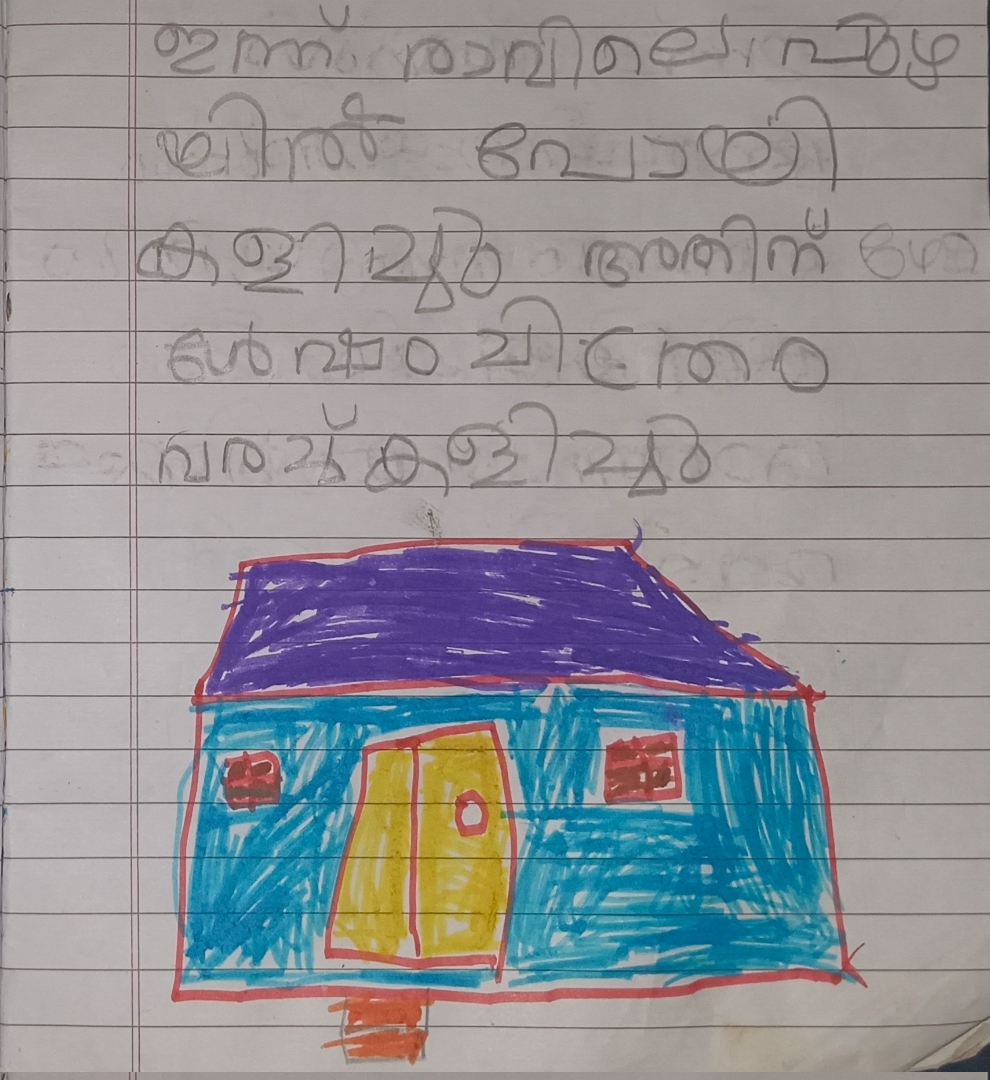 ഇന്ന് രാവിലെ പുഴ
യിൽ പോയി
കളിച്ചും അതിന് ശേ
ൾഷം ചിത്രം
വരച്ച്കളിച്ചും